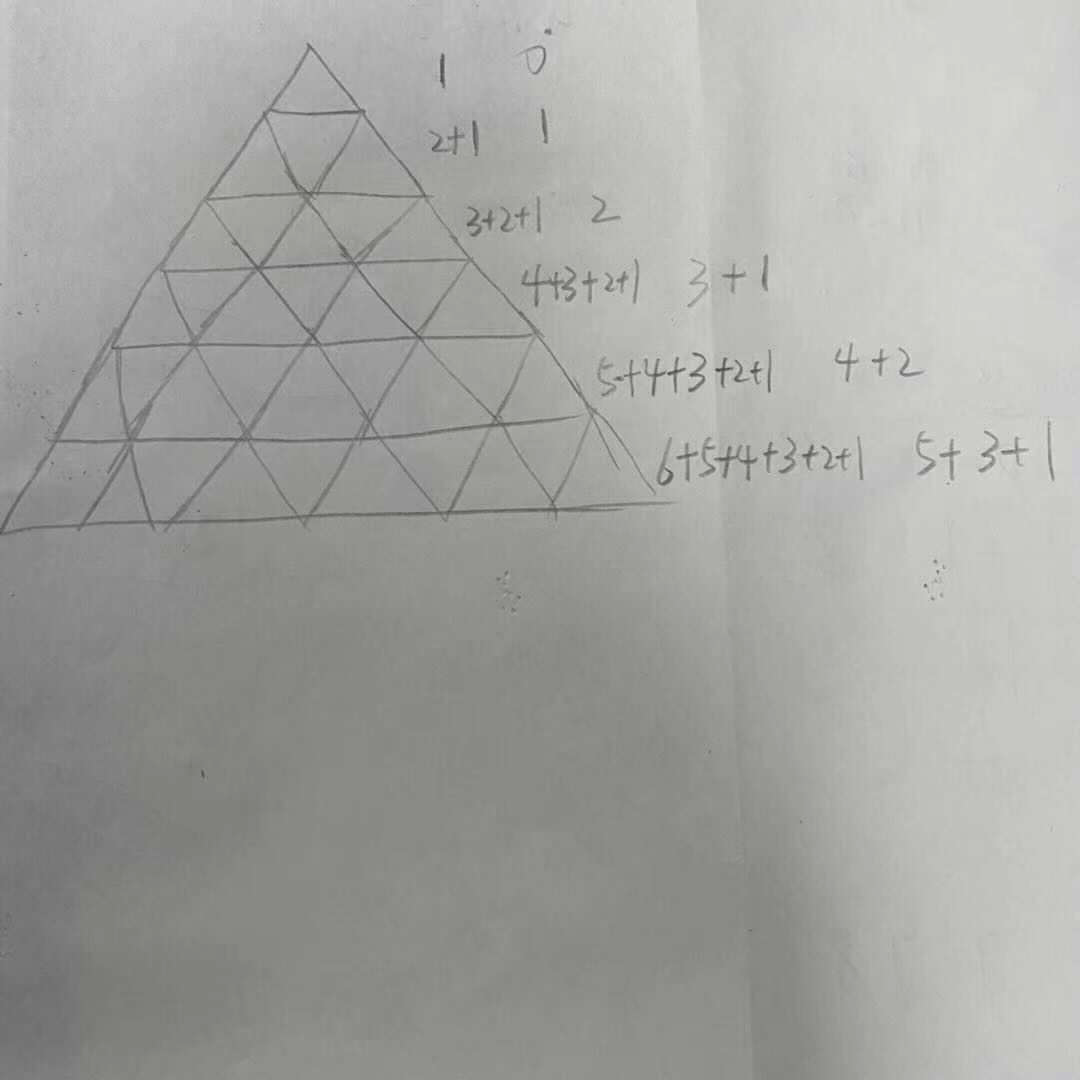 1 0
2+1 1
3+2+1 2
4+3+2+1 3+1
5+4+3+2+1 4+2
6+5+4+3+2+1 5+3+1